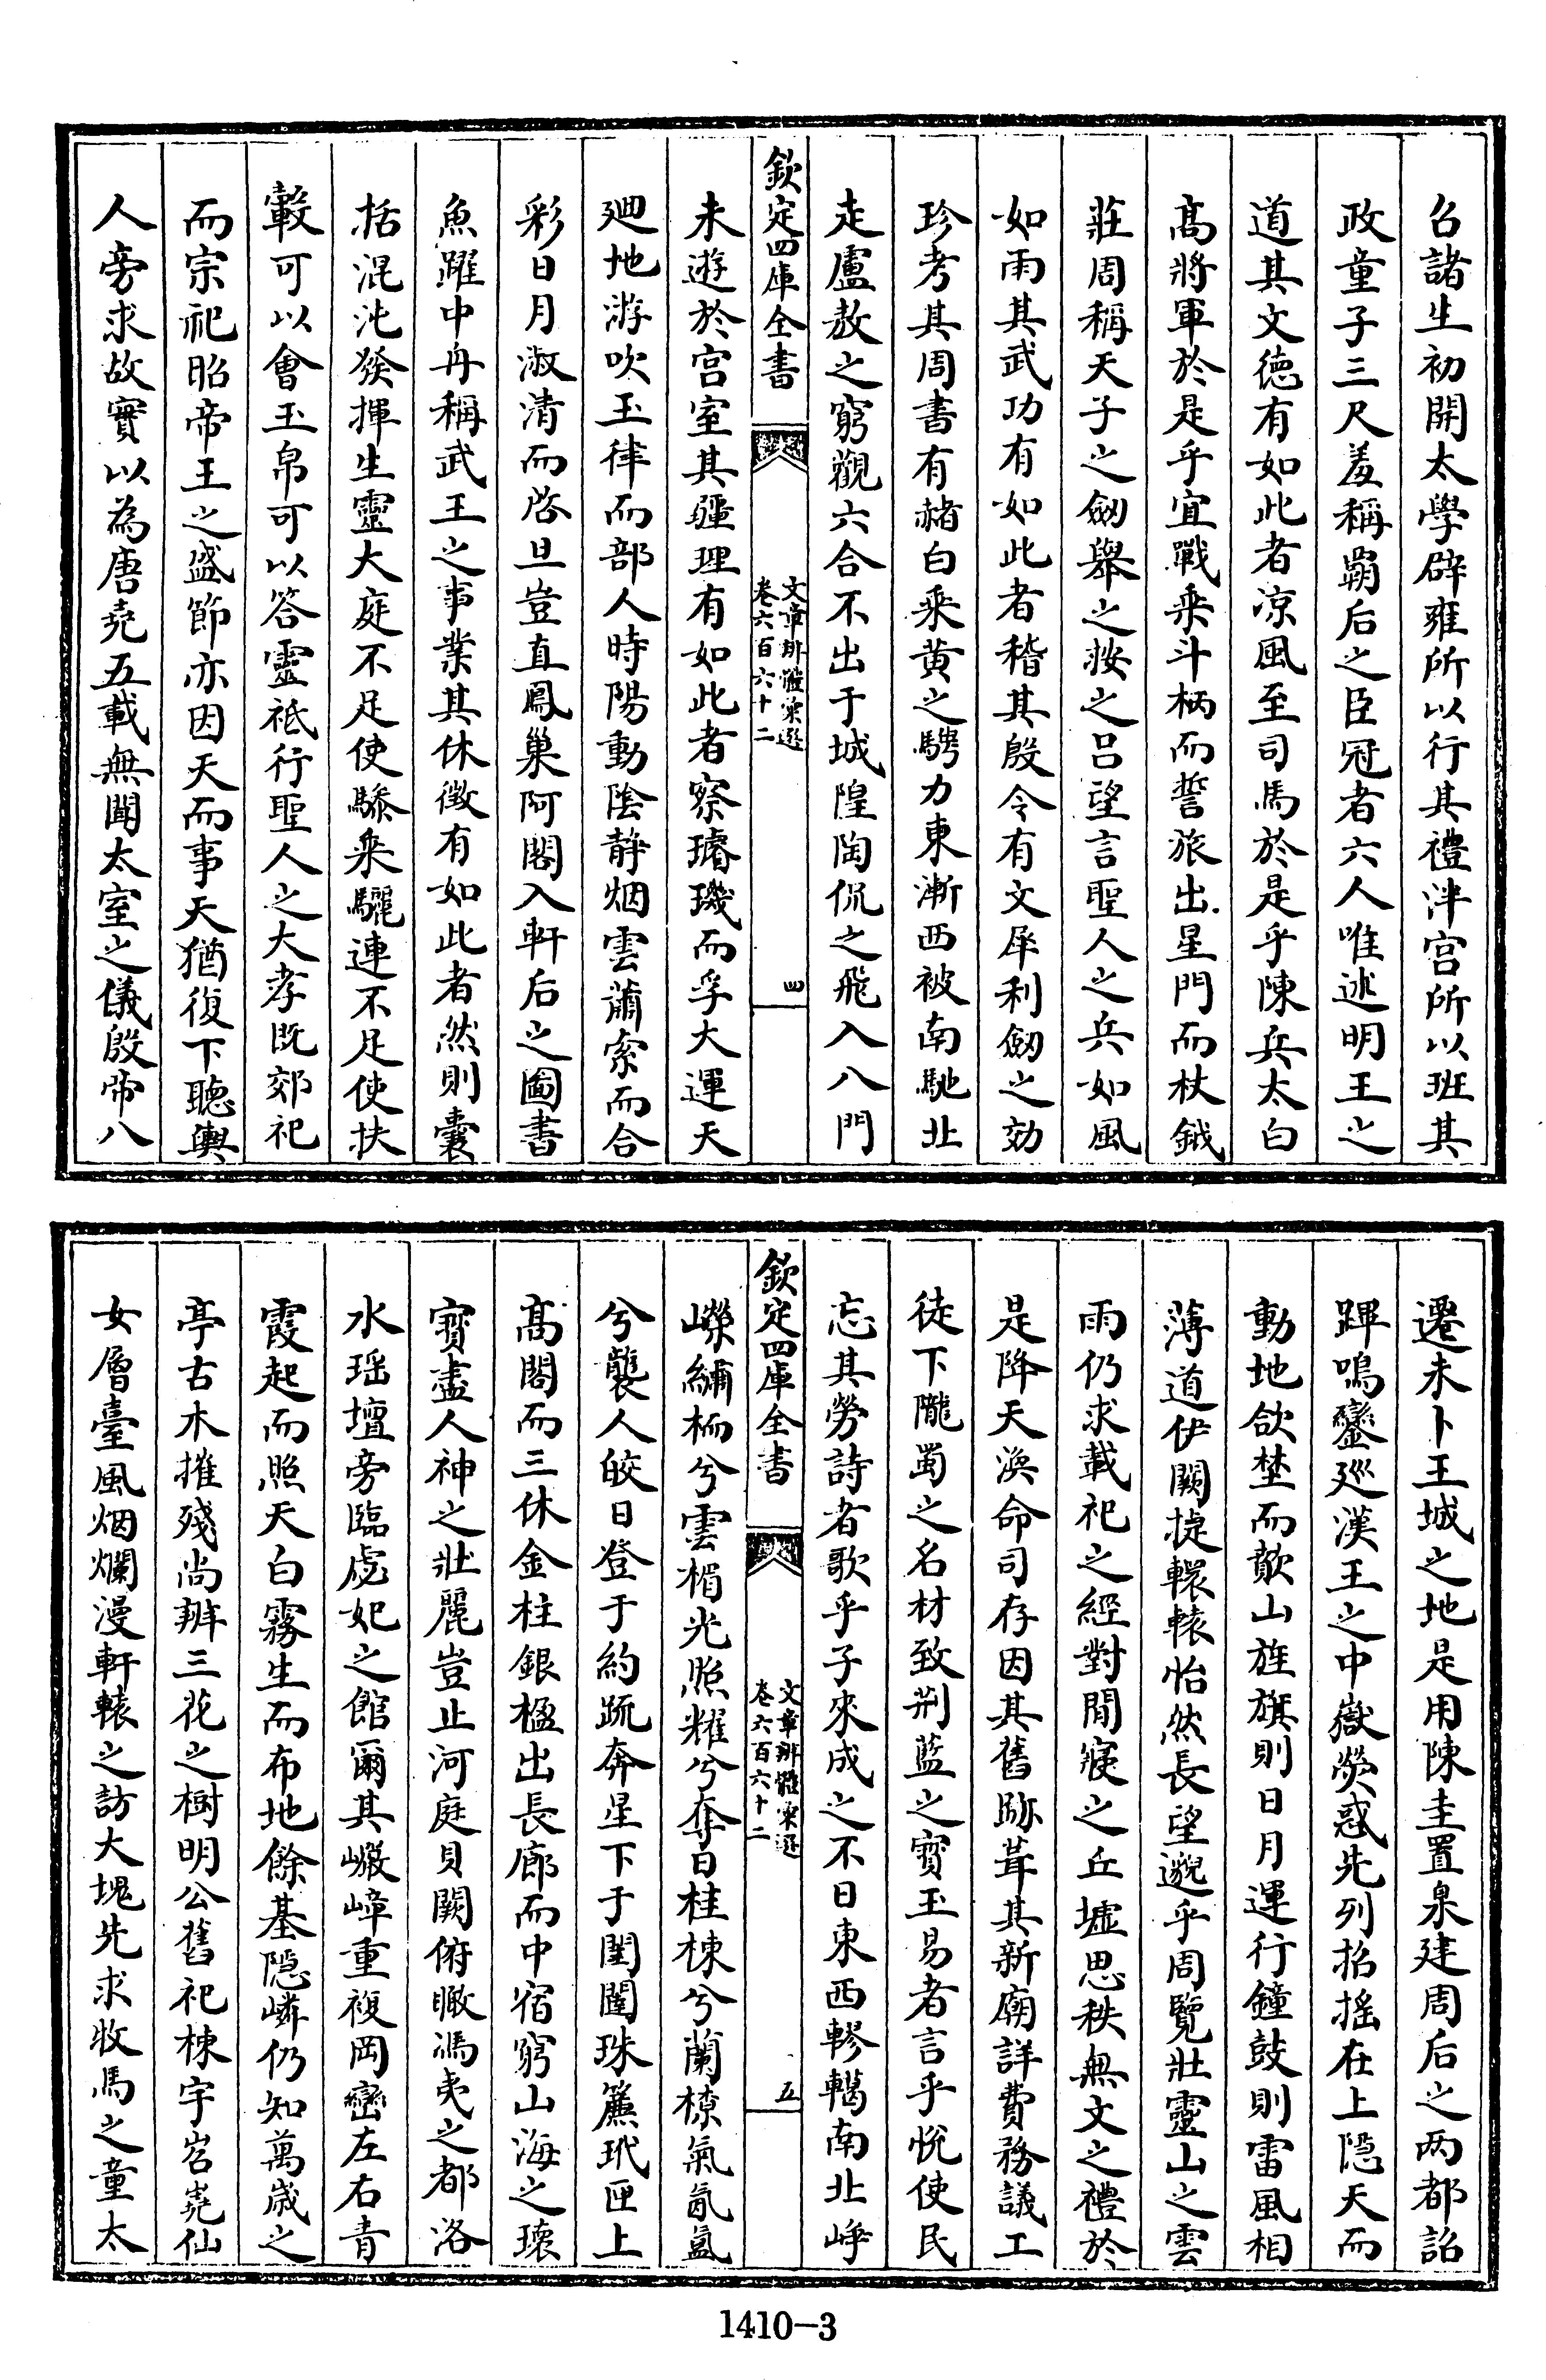 召諸生初開太學辟雍所以行其禮泮宫所以班其
政童子三尺羞稱霸后之臣冠者六人唯述明王之
道其文徳有如此者凉風至司馬於是乎陳兵太白
髙將軍於是乎宜戰乗斗柄而誓旅出星門而杖鉞
莊周稱天子之劒舉之按之吕望言聖人之兵如風
如雨其武功有如此者稽其殷令有文犀利劒之効
珍考其周書有赭白乗黄之騁力東漸西被南馳北
走盧敖之窮觀六合不出于城隍陶侃之飛入八門
欽定四庫全書
文章辨體彚選
卷六百六十二
四
未遊於宫室其疆理有如此者察璿璣而孚大運天
廻地游吹玉律而部人時陽動陰静烟雲蕭索而合
彩日月淑清而啓旦豈直鳳巢阿閣入軒后之圖書
魚躍中舟稱武王之事業其休徴有如此者然則囊
括混沌發揮生靈大庭不足使驂乗驪連不足使扶
轂可以會玉帛可以答靈祗行聖人之大孝既郊祀
而宗祀昭帝王之盛節亦因天而事天猶復下聽輿
人旁求故實以為唐堯五載無聞太室之儀殷帝八
遷未卜王城之地是用陳圭置臬建周后之两都詔
蹕鳴鑾廵漢王之中嶽熒惑先列招搖在上隠天而
動地欱埜而歕山旌旗則日月運行鐘鼓則雷風相
薄道伊闕捷轘轅怡然長望邈乎周覽壯靈山之雲
雨仍求載祀之經對閒寝之丘墟思秩無文之禮於
是降天渙命司存因其舊跡葺其新廟詳費務議工
徒下隴蜀之名材致荆藍之寳玉易者言乎悅使民
忘其勞詩者歌乎子來成之不日東西轇轕南北崢
欽定四庫全書
文章辨體彚選
卷六百六十二
五
嶸繡栭兮雲楣光照耀兮奪日桂棟兮蘭橑氣氤氲
兮襲人皎日登于約疏奔星下于閨闥珠簾玳匣上
髙閣而三休金柱銀楹出長廊而中宿窮山海之瓌
寳盡人神之壯麗豈止河庭貝闕俯瞰馮夷之都洛
水瑶壇旁臨虙妃之館爾其巘嶂重複岡巒左右青
霞起而照天白霧生而布地餘基隠嶙仍知萬歳之
亭古木摧殘尚辨三花之樹明公舊祀棟宇岧嶤仙
女層臺風烟爛漫軒轅之訪大塊先求牧馬之童太
1410-3